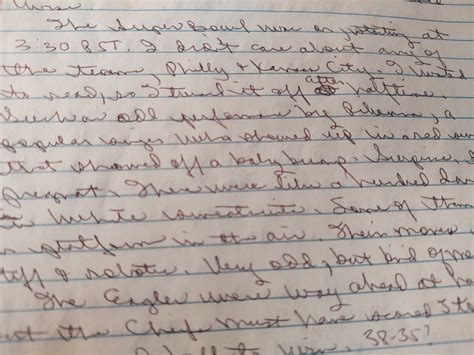 The Super Bowl was on, starting at
3:30 PST. I don't care about any of
the teams, Philly & Kansas City. I wanted
to read, so I turned it off after halftime.
was odd performance by Rihanna, a
popular singer who showed up in a red
that showed off a baby bump. Surprise, I
Pregnant. There were like a hundred
in white sweatsuits. Some of them
platform in the air. Their moves
stiff & robotic. Very odd, but kind of
The Eagles were way ahead at ha
but the Chiefs must have scored 3 t
to win. 38-35?